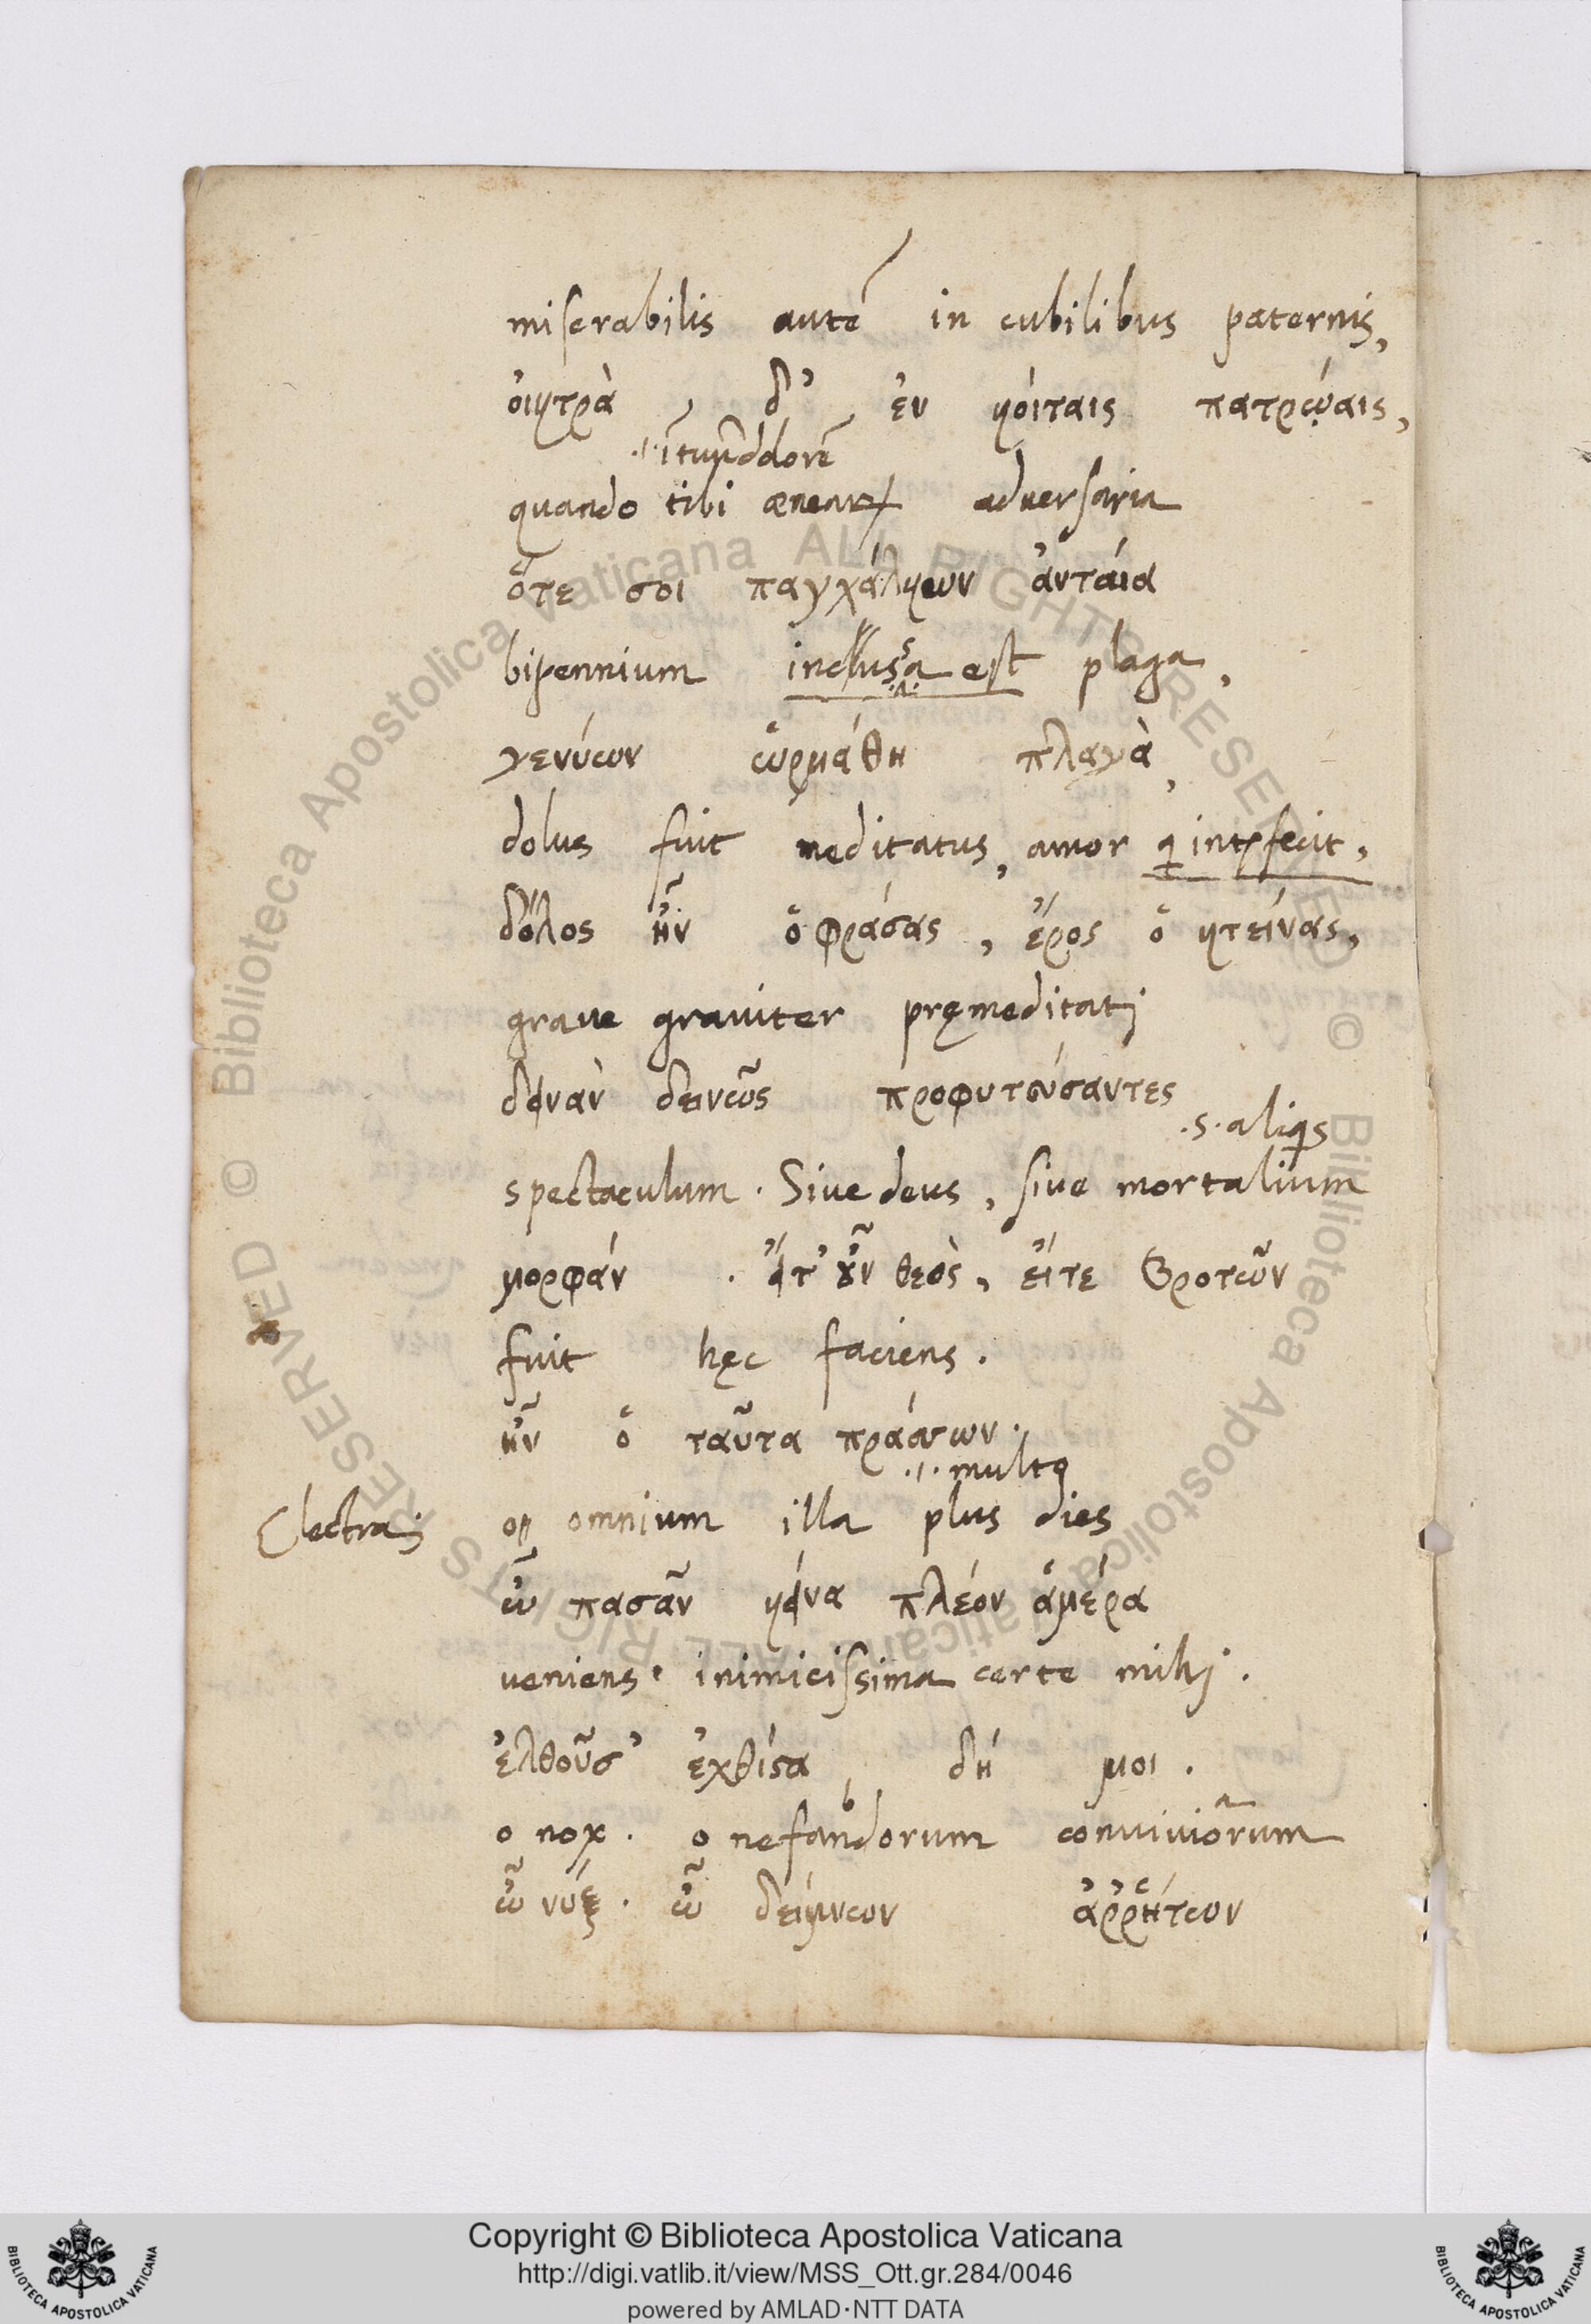 miserabilis autē in cubilibus paternis,
οἰκτρὰ, δ᾽ ἐν κοίταις πατρῴαις,
quando tibi ænear adversaria
ὅτε σοι παγχάλκων ἀνταία
bipennium inclusa est plaga,
γενύων ὡρμάθη πλαγὰ,
dolus fuit meditatus, amor q intfecit,
δόλος ἦν ὁ φράσας, ἔρος ὁ κτείνας,
grave graviter pręmeditati
δεινὰν δεινῶς προφυτεύσαντες
.s. aliqs
spectaculum. Sive deus, sive mortalium
μορφάν. εἴτ᾽ οὖν θεὸς, εἴτε βροτῶν
fuit hęc faciens.
ἦν ὁ ταῦτα πράσσων.
multo
Electra o omnium illa plus dies
ὦ πασᾶν κείνα πλέον ἁμέρα
veniens. inimicissima certe mihj.
ἐλθοῦσ᾽ ἐχθίστα, δή μοι.
o nox. o nefandorum conviviorum
ὦ νύξ. ὦ δείπνων ἀῤῥήτων
Copyright © Biblioteca Apostolica Vaticana
http://digi.vatlib.it/view/MSS_Ott.gr.284/0046
powered by AMLAD·NTT DATA